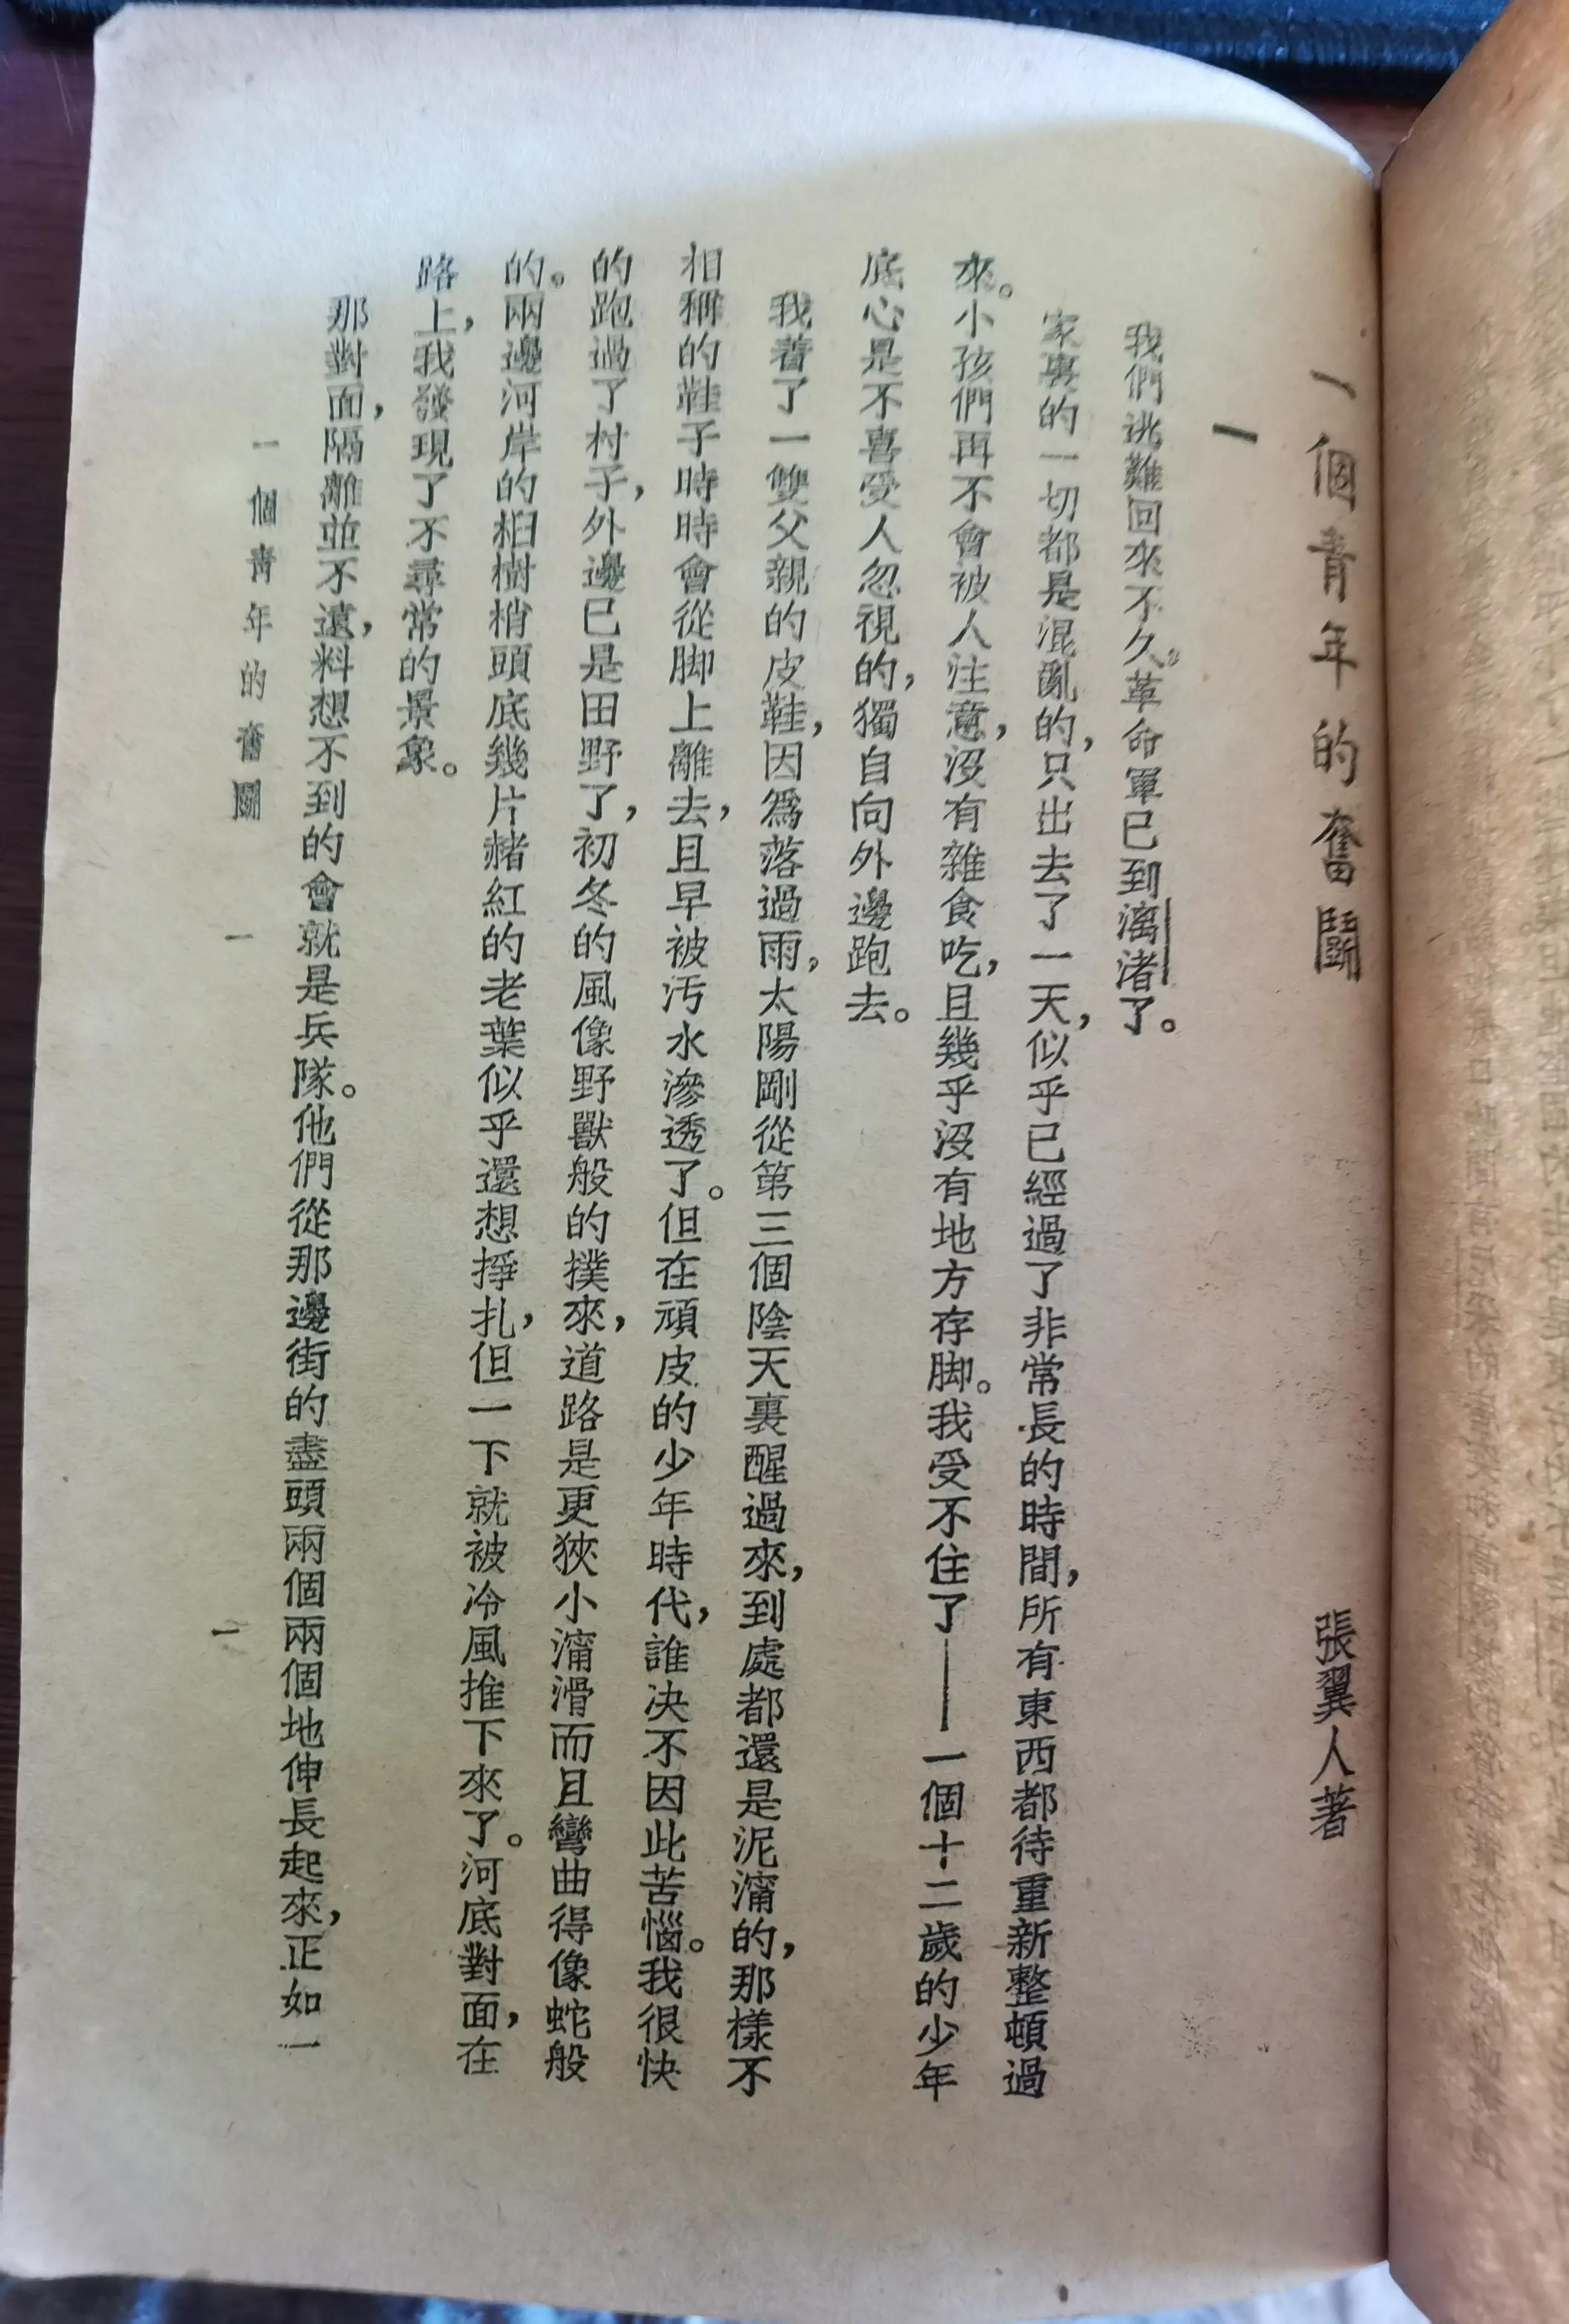 一個青年的奮鬪
張翼人著
一
我們逃難回來不久。革命軍已到漓渚了。
家裏的一切都是混亂的，只出去了一天，似乎已經過了非常長的時間，所有東西都待重新整頓過
來。小孩們再不會被人注意，沒有雜食吃，且幾乎沒有地方存脚。我受不住了——一個十二歲的少年
底心是不喜受人忽視的，獨自向外邊跑去。
我着了一雙父親的皮鞋，因爲落過雨，太陽剛從第三個陰天裏醒過來，到處都還是泥濘的，那樣不
相稱的鞋子時時會從脚上離去，且早被汚水滲透了。但在頑皮的少年時代，誰决不因此苦惱。我很快
的跑過了村子，外邊已是田野了，初冬的風像野獸般的撲來，道路是更狹小濘滑而且彎曲得像蛇般
的。兩邊河岸的桕樹梢頭底幾片赭紅的老葉似乎還想掙扎，但一下就被冷風推下來了。河底對面，在
路上，我發現了不尋常的景象。
那對面，隔離並不遠，料想不到的會就是兵隊。他們從那邊街的盡頭兩個兩個地伸長起來，正如一
一個靑年的奮鬪
一
一